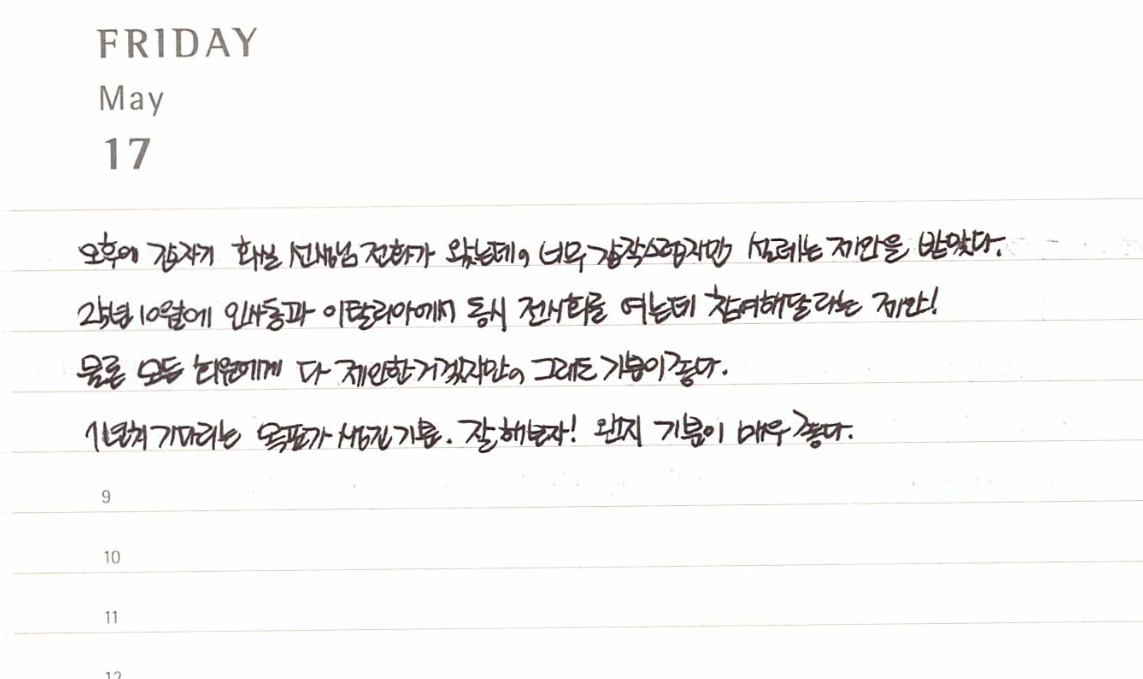 FRIDAY
May
17
오후에 갑자기 화실 선생님 전화가 왔는데, 너무 갑작스럽지만 설레는 제안을 받았다.
25년 10월에 인사동과 이탈리아에서 동시 전시회를 여는데 참여해달라는 제안!
물론 모든 회원에게 다 제안한거겠지만, 그래도 기분이 좋다.
1년넘게 기다리는 목표가 생긴기분. 잘해보자! 왠지 기분이 매우 좋다.
9
10
11
12